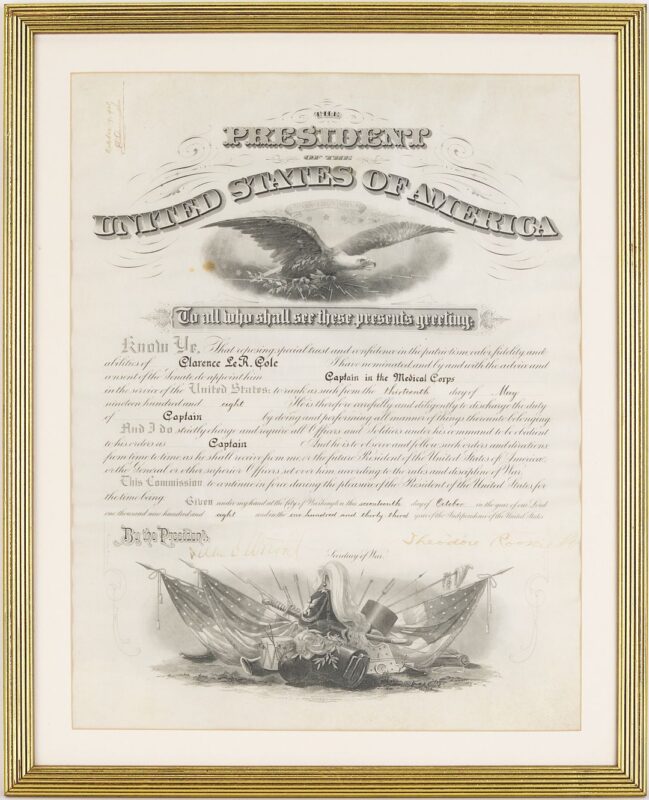 THE
PRESIDENT
OF THE
UNITED STATES OF AMERICA
To all who shall see these presents greeting:
Know Ye, That reposing special trust and confidence in the patriotism valor, fidelity and
abilities of Clarence LeR. Cole I have nominated and by and with the advice and
consent of the Senate do appoint him Captain in the Medical Corps
in the service of the United States: to rank as such from the thirteenth day of May
nineteen hundred and eight He is therefore carefully and diligently to discharge the duty
of Captain by doing and performing all manner of things thereunto belonging
And I do strictly charge and require all Officers and Soldiers under his command to be obedient
to his orders as Captain And he is to observe and follow such orders and directions
from time to time as he shall receive from me, or the future President of the United States of America,
or the General or other superior Officers set over him according to the rules and discipline of War.
This Commission to continue in force during the pleasure of the President of the United States for
the time being.
Given under my hand at the City of Washington this seventeenth day of October in the year of our Lord
one thousand nine hundred and eight and in the one hundred and thirty third year of the Independence of the United States
By the President
Theodore Roosevelt
Secretary of War